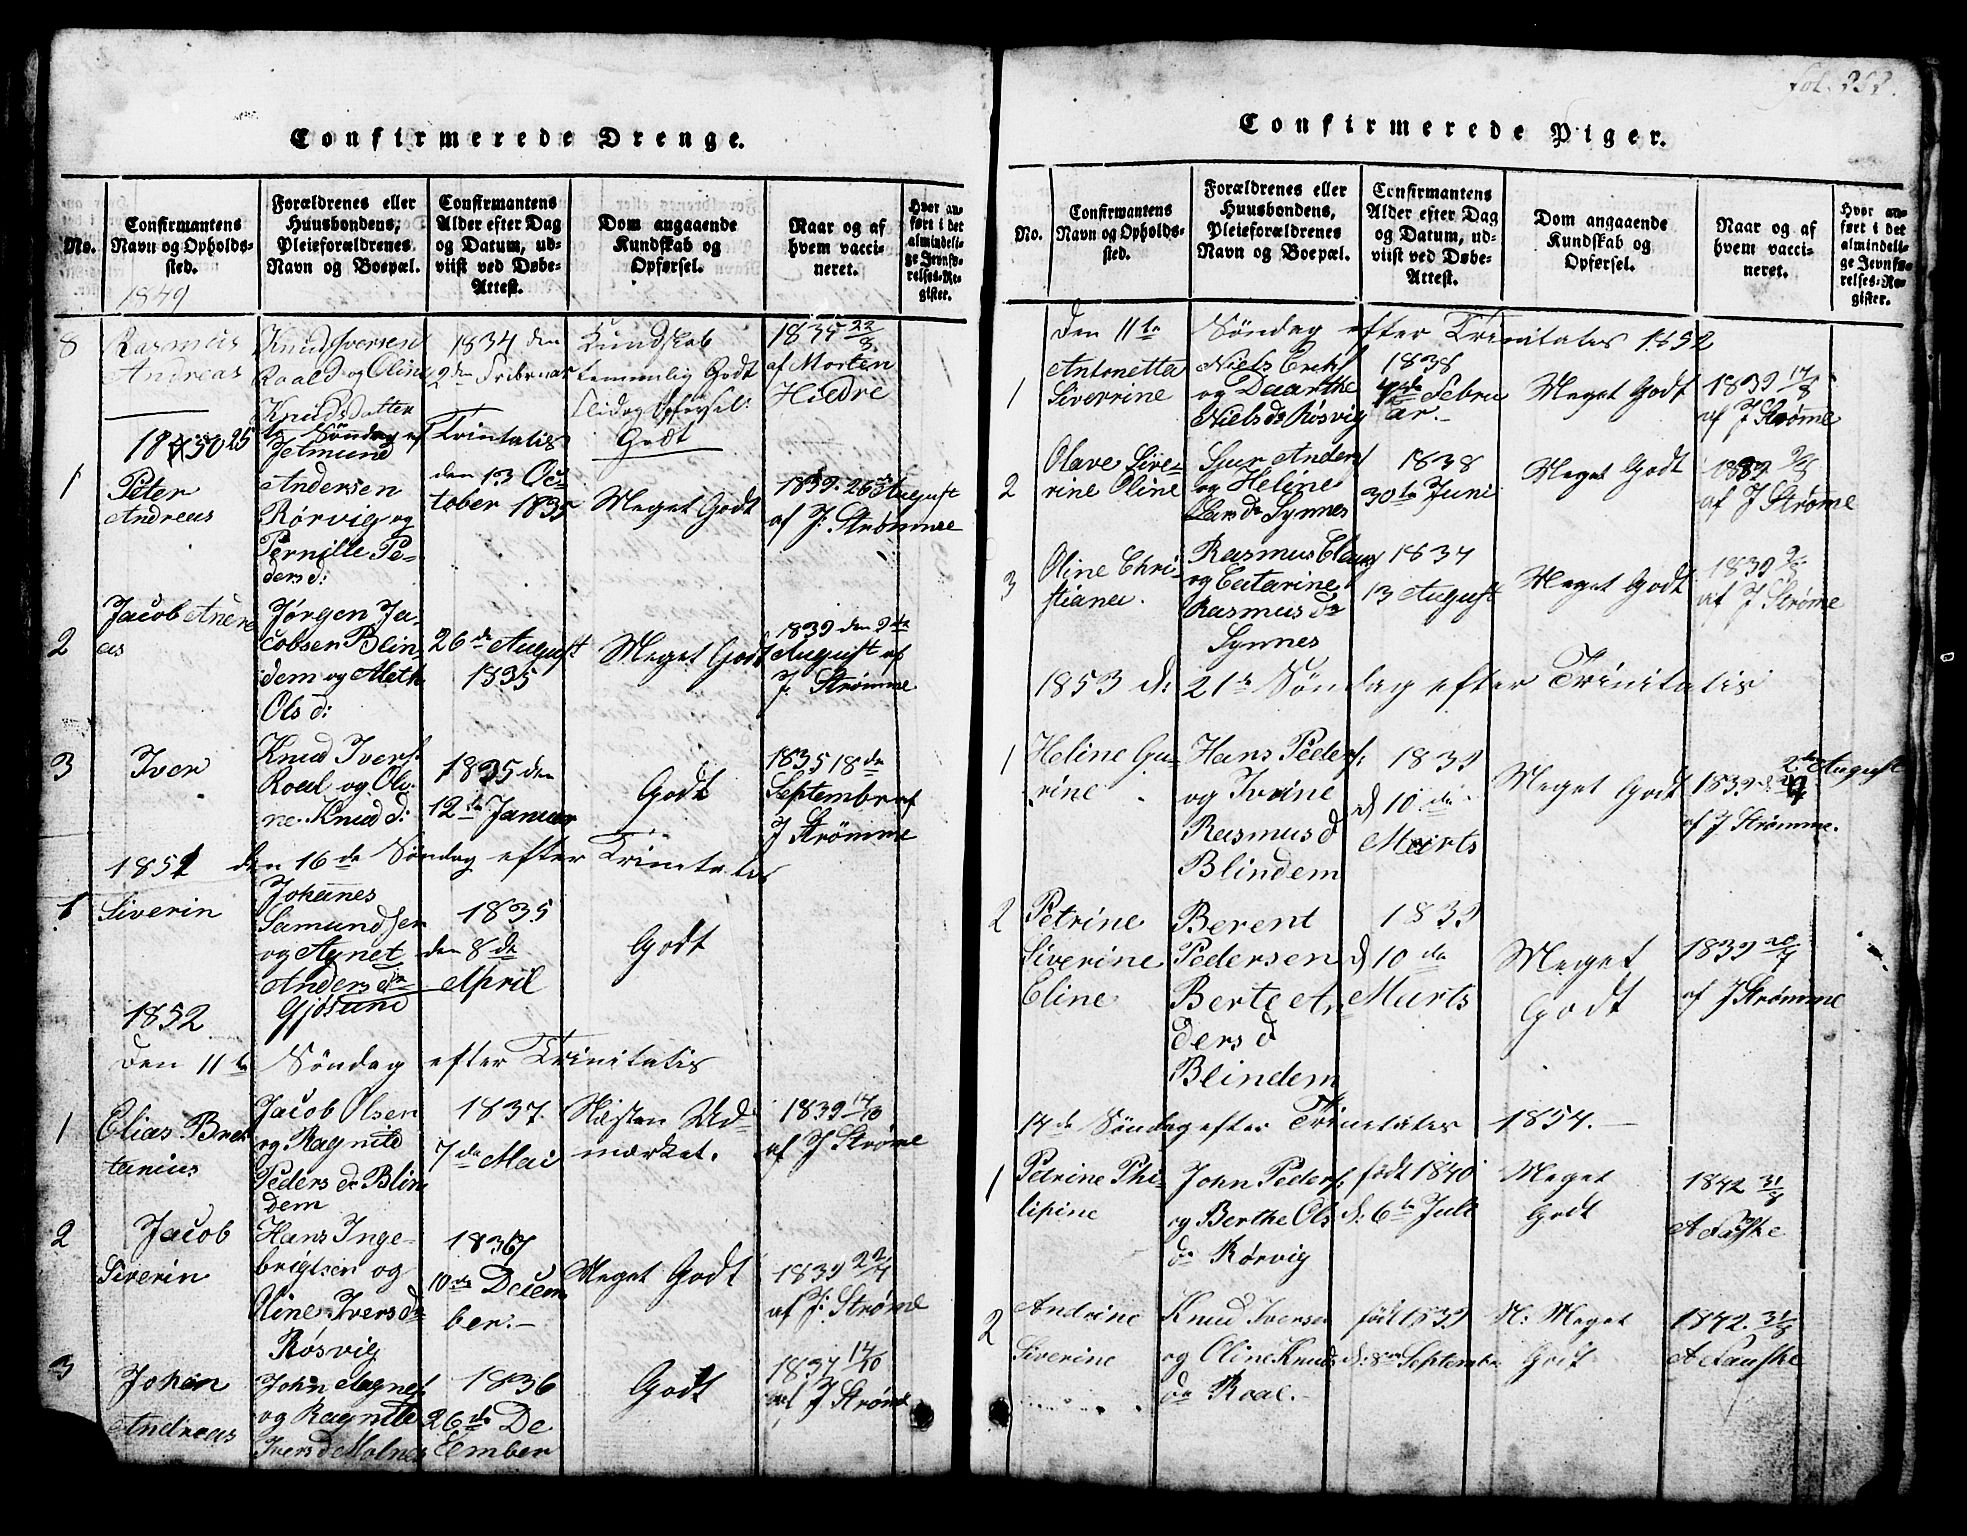 Confirmerede Drenge.
No.
Confirmantens
Navn og Opholds-
sted.
Forældrenes eller
Huusbondens,
Pleieforældrenes
Navn og Boepæl.
Confirmantens
Alder efter Dag
og Datum, ud-
viist ved Døbe-
Attest.
Dom angaaende
Kundskab og
Opførsel.
Naar og af
hvem vacci-
neret.
Hvor an-
ført i det
almindeli-
ge Jevnfø-
relses-Re-
gister.
1849
8
Rasmus
Andreas
Knud Iversen
Roald og Oline
Knudsdatter
1834 den
2den Februar
Kundskab
temmelig Godt
Flid og Opførsel:
Godt
1834 22/8
af Morten
Hildre
1850 25
Søndag ef Trinitatis
1
Peter
Andreas
Jetmund
Andersen
Rørvig og
Pernille Pe-
dersd:
den 13 Oc-
tober 1835
Meget Godt
1839. 26 August
af J: Strømme
2
Jacob Andre
as
Jørgen Ja-
cobsen Blin-
dem og Aleth
Ols d:
26de August
1835
Meget Godt
1839 den 9de
August af
J: Strømme
3
Iver
Knud Ivers.
Roal og Oli-
ne Knud d:
1835 den
12te Januar
Godt
1835 18de
September af
J Strømme
1851 den 16de Søndag efter Trinitatis
1
Siverin
Johannes
Samundsen
og Agnet
Andersdr
Gjøsund
1835
den 8de
April
Godt
1852
Den 11te Søndag efter Trinitatis
1
Elias Bret
tanius
Jacob Olsen
og Ragnild
Peders dr Blin
dem
1837.
7de Mai
Næsten Ud-
mærket.
1839 17/8
af J Strøme
2
Jacob
Siverin
Hans Inge-
brigtsen og
Oline Iversdr
Røsvig
1836
10de Decem
ber.-
Meget Godt
1839 22/7
af J: Strøme
3
Johan
Andreas
John
og Ragnild
Ivers d Molnes
1836
26de De
cember
Godt
1837 14/10
af J Strøme
Confirmerede Piger.
No.
Confirmantens
Navn og Opholds-
sted.
Forældrenes eller
Huusbondens,
Pleieforældrenes
Navn og Boepæl.
Confirmantens
Alder efter Dag
og Datum, ud-
viist ved Døbe-
Attest.
Dom angaaende
Kundskab og
Opførsel.
Naar og af
hvem vacci-
neret.
Hvor an-
ført i det
almindeli-
ge Jevnfø-
relses-Re-
gister.
Den 11te Søndag efter Trinitatis 1852
1
Antonetta
Siverrine
Niels Erks
og Daarthe
Niels dr Røsvig
1838
Febru
ar.-
Meget Godt
1839 17/8
af J Strøme
2
Olave Sive-
rine Oline
Sjur Anders
og Heline
Lars dr Synnes
1838
30te Juni
Meget Godt
1839
af J Strøme
3
Oline Chri-
stiana.
Rasmus Claus
og Catarine
Rasmus dr
Synnes
1837
13 August
Meget Godt
1839
af J Strøme
1853 d: 21de Søndag efter Trinitatis
1
Heline Gu-
rine
Hans Peders:
og Ivrine
Rasmus d
Blindem
1839
d 10de
Marts
Meget Godt
1839 2den August
af J Strømme.
2
Petrine
Siverine
Eline
Berent
Pedersen
Berte An
ders d
Blindem
1839
d 10de
Marts
Meget
Godt
1839 20/7
af J Strømme
14de Søndag efter Trinitatis 1854.
1
Petrine Phi-
lipine
John Peders
og Berthe Ols
dr Rørvig
født 1840
d: 6te Juli
Meget
Godt
1842 31/8
A Fauske
2
Andrine
Siverine
Knud Iversen
og Oline Knuds
dr Roal.-
født 1839
d: 8de Septembr
N: Meget
Godt
1842. 31/8
A Fauske